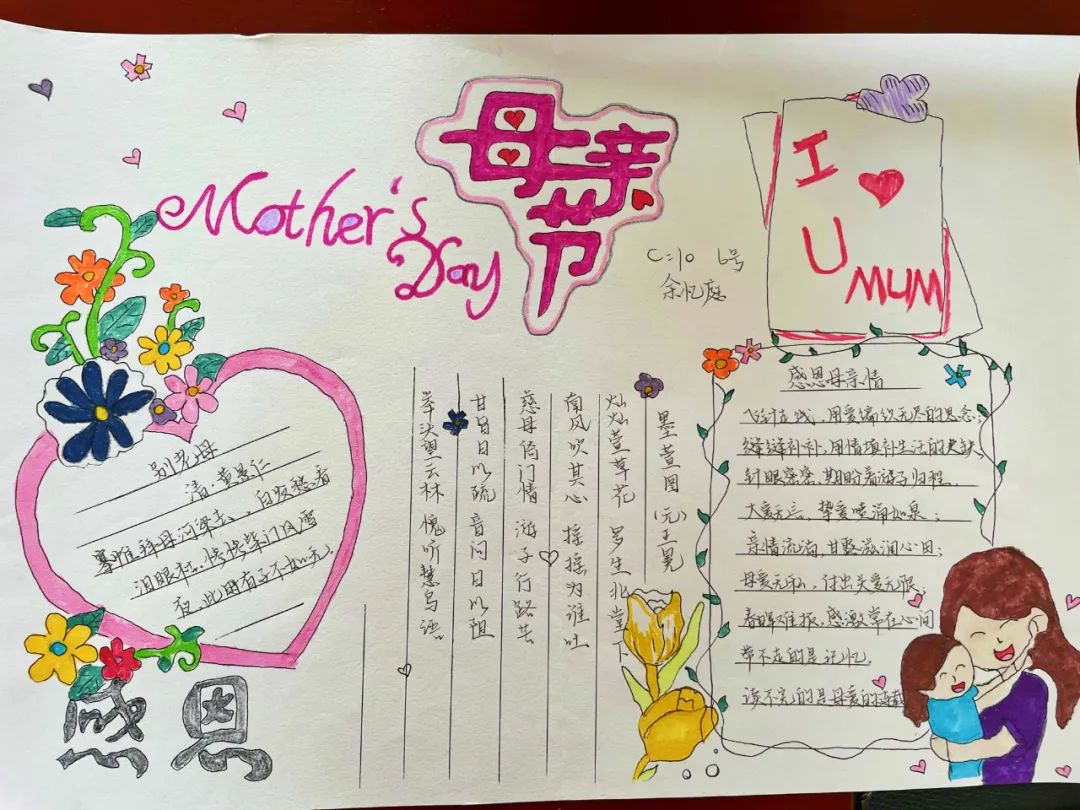 母亲节
Mother's
Day
C:10 6号
余忆庭
I
U
MUM
别老母
清·黄景仁
搴帷拜母河梁去、白发愁看
泪眼枯。惨惨柴门风雪
夜、此时有子不如无。
感恩
墨萱图 (元)王冕
灿灿萱草花 罗生北堂下
南风吹其心 摇摇为谁吐
慈母倚门情 游子行路苦
甘旨日以疏 音问日以阻
举头望云林 愧听慧鸟语。
感恩母亲情
飞针走线,用爱编织无尽的思念;
缝缝补补,用情填补生活的欠缺
针眼密密,期盼着游子归程。
大爱无言,挚爱喷涌如泉;
亲情流淌,甘露滋润心田;
母爱无私,付出关爱无限。
春晖难报,感激常在心间
带不走的是记忆,
读不完的是母爱的连载